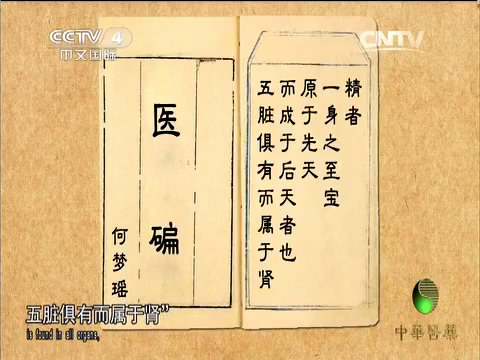 CCTV 4
中文国际
CNTV
精者
一身之至宝
原于先天
而成于后天者也
五脏俱有而属于肾
医碥
何梦瑶
五脏俱有而属于肾”
is found in all organs,
中華醫藥